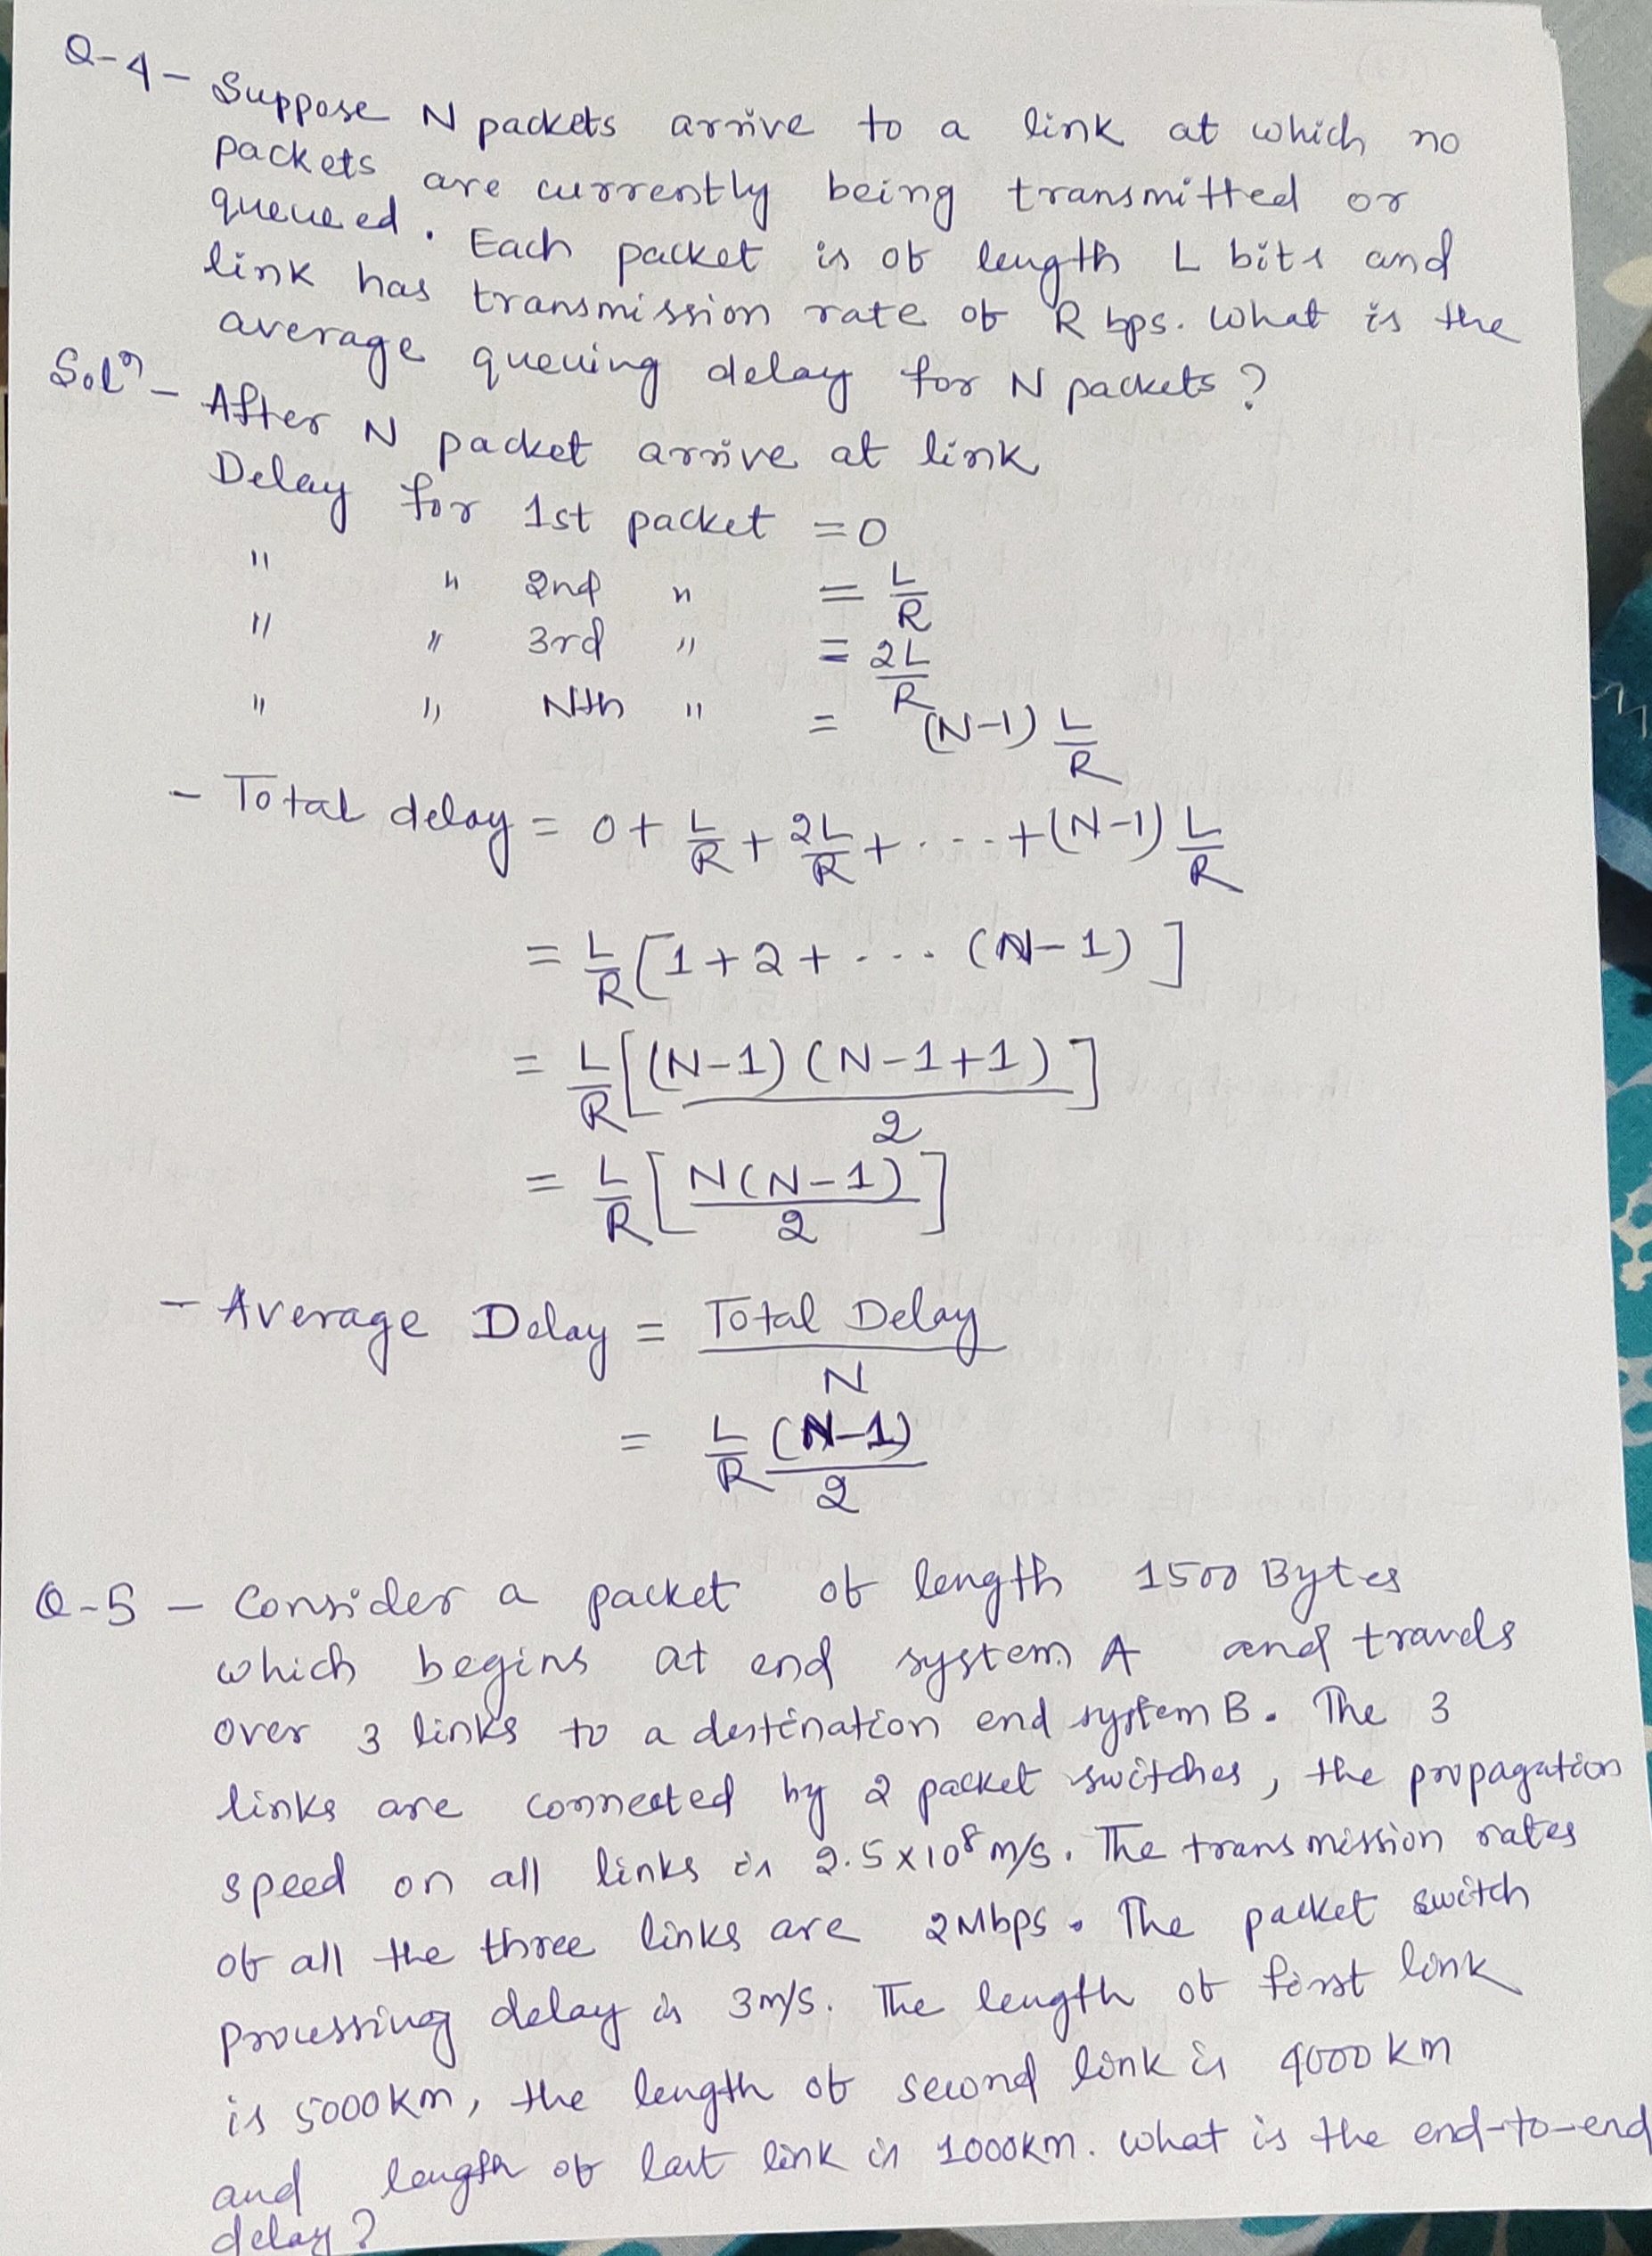 Q-4- Suppose N packets arrive to a link at which no
packets are currently being transmitted or
queued. Each packet is of length L bits and
link has transmission rate of R bps. What is the
average queuing delay for N packets?
Solⁿ- After N packet arrive at link
Delay for 1st packet = 0
" " 2nd " = L/R
" " 3rd " = 2L/R
" " Nth " = (N-1) L/R
- Total delay = 0 + L/R + 2L/R + .... + (N-1) L/R
= L/R [1+2+.... (N-1)]
= L/R [(N-1)(N-1+1)/2]
= L/R [N(N-1)/2]
- Average Delay = Total Delay/N
= L/R (N-1)/2
Q-5 - Consider a packet of length 1500 Bytes
which begins at end system A and travels
over 3 links to a destination end system B. The 3
links are connected by 2 packet switches, the propagation
speed on all links is 2.5×10⁸ m/s. The transmission rates
of all the three links are 2Mbps. The packet switch
processing delay is 3m/s. The length of first link
is 5000km, the length of second link is 4000km
and length of last link is 1000km. What is the end-to-end
delay?